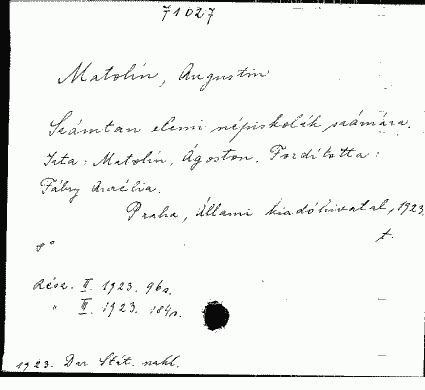 71027
Matolín, Augustin
Számtan elemi népiskolák számára.
Irta: Matolín, Ágoston. Fordította:
Fábry Aurélia.
Praha, Állami kiadóhivatal, 1923
t.
8°
Rész. II. 1923. 96 s.
" III. 1923. 184 s.
1923. Dar Stát. nakl.